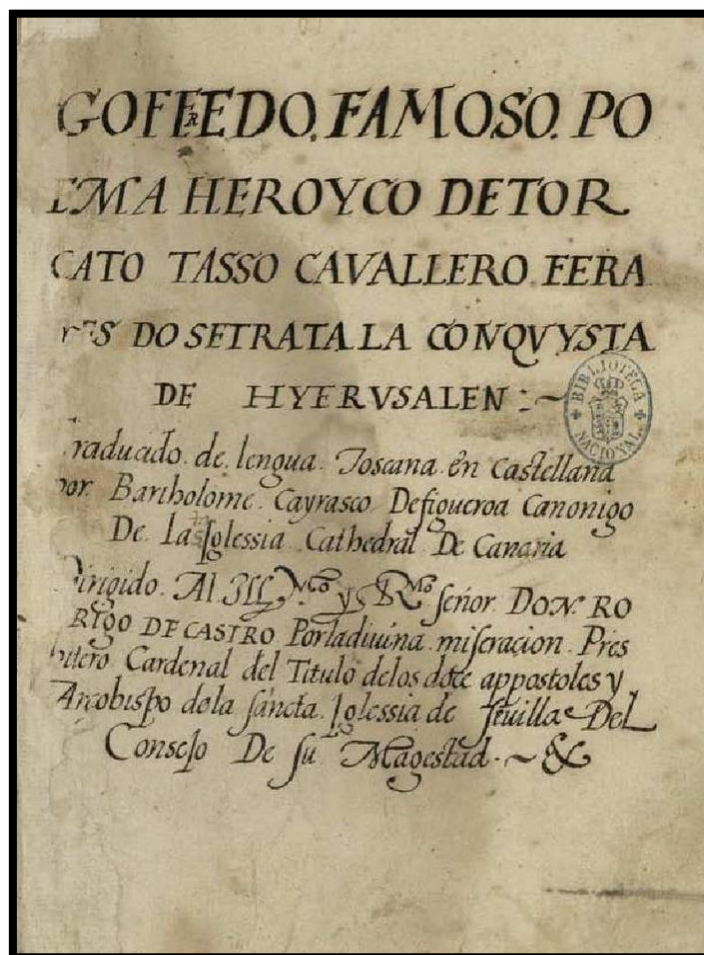 GOFFREDO. FAMOSO. PO
EMA HEROYCO DE TOR
CATO TASSO CAVALLERO FERA
RES DO SE TRATA LA CONQVYSTA
DE HYERVSALEN :~
Traducido. de. lengua. Toscana. en Castellana
por. Bartholome. Cayrasco Defigueroa Canonigo
De. La Iglessia Cathedral De Canaria
Dirigido. Al Illmo y Rmo señor DON. RO
RIGO DE CASTRO Por la diuina miseracion. Pres
bitero Cardenal del Titulo de los doçe appostoles y
Arçobispo de la sancta. Iglessia de seuilla Del
Consejo De su Magestad. ~ &
BIBLIOTECA NACIONAL